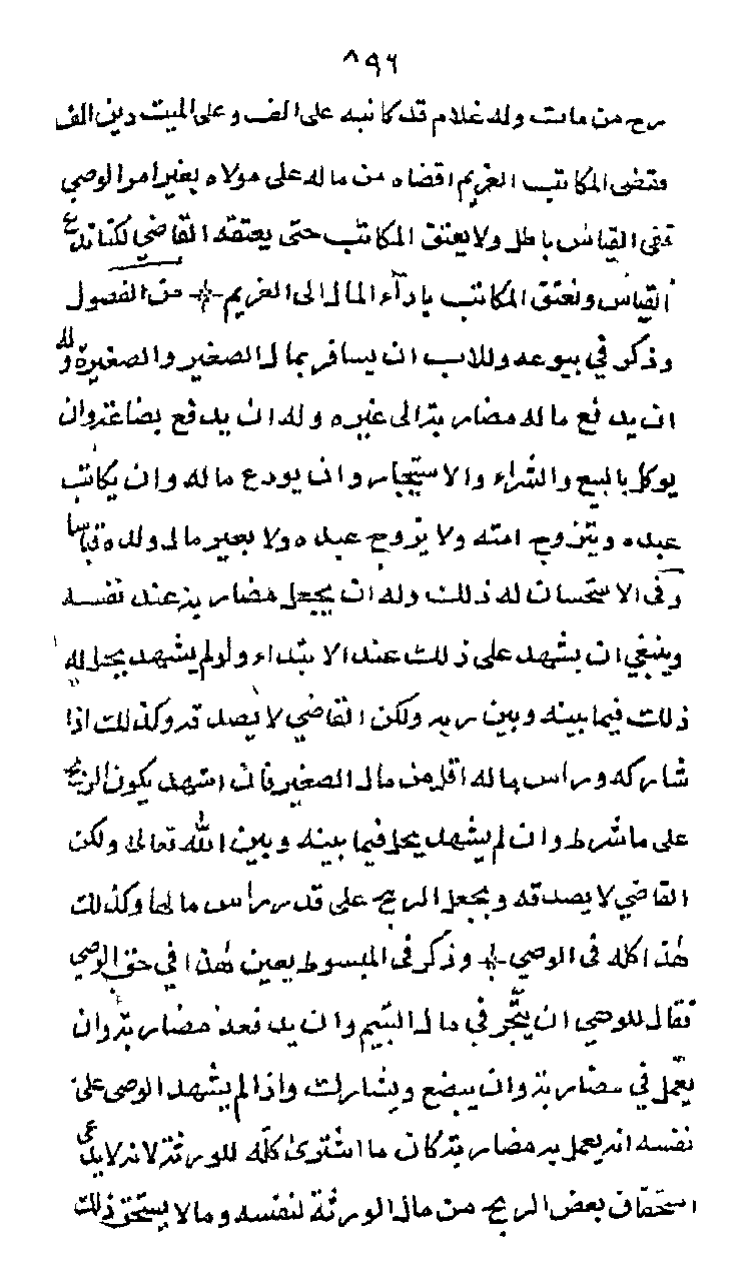 ٨٩٦
رح من مات وله غلام قد كاتبه على الف وعلى الميت دين الف
فقضى المكاتب الغريم اقضاه من ماله على مولاه بغير امر الوصي
ففى القياس باطل ولا يعتق المكاتب حتى يعتقه القاضي لكنا ندع
القياس ونعتق المكاتب بادآء المال الى الغريم من الفصول
وذكر في بيوعه وللاب ان يسافر بمال الصغير والصغيرة وله
ان يدفع ماله مضاربة الى غيره وله ان يدفع بضاعة وان
يوكل بالبيع والشراء والاستيجار وان يودع ماله وان يكاتب
عبده ويزوج امته ولا يزوج عبده ولا بعير مال ولده قياسا
وفى الاستحسان له ذلك وله ان يجعل مضاربة عند نفسه
وينبغي ان يشهد على ذلك عند الابتداء ولو لم يشهد يحل له
ذلك فيما بينه وبين ربه ولكن القاضي لا يصدقه وكذلك اذا
شاركه وراس ماله اقل من مال الصغير فان اشهد يكون الربح
على ما شرط وان لم يشهد يحل فيما بينه وبين الله تعالى ولكن
القاضي لا يصدقه ويجعل الربح على قدر رأس مالها وكذلك
هذا كله فى الوصي وذكر فى المبسوط بعين هذا في حق الوصي
فقال للوصي ان يتّجر في مال اليتيم وان يدفعه مضاربة وان
يعمل في مضاربة وان يبضع ويشارك واذا لم يشهد الوصى على
نفسه انه يعمل به مضاربة كان ما اشترى كلّه للورثة لانه لا يدعى
استحقاق بعض الربح من مال الورثة لنفسه وما لا يستحق ذلك